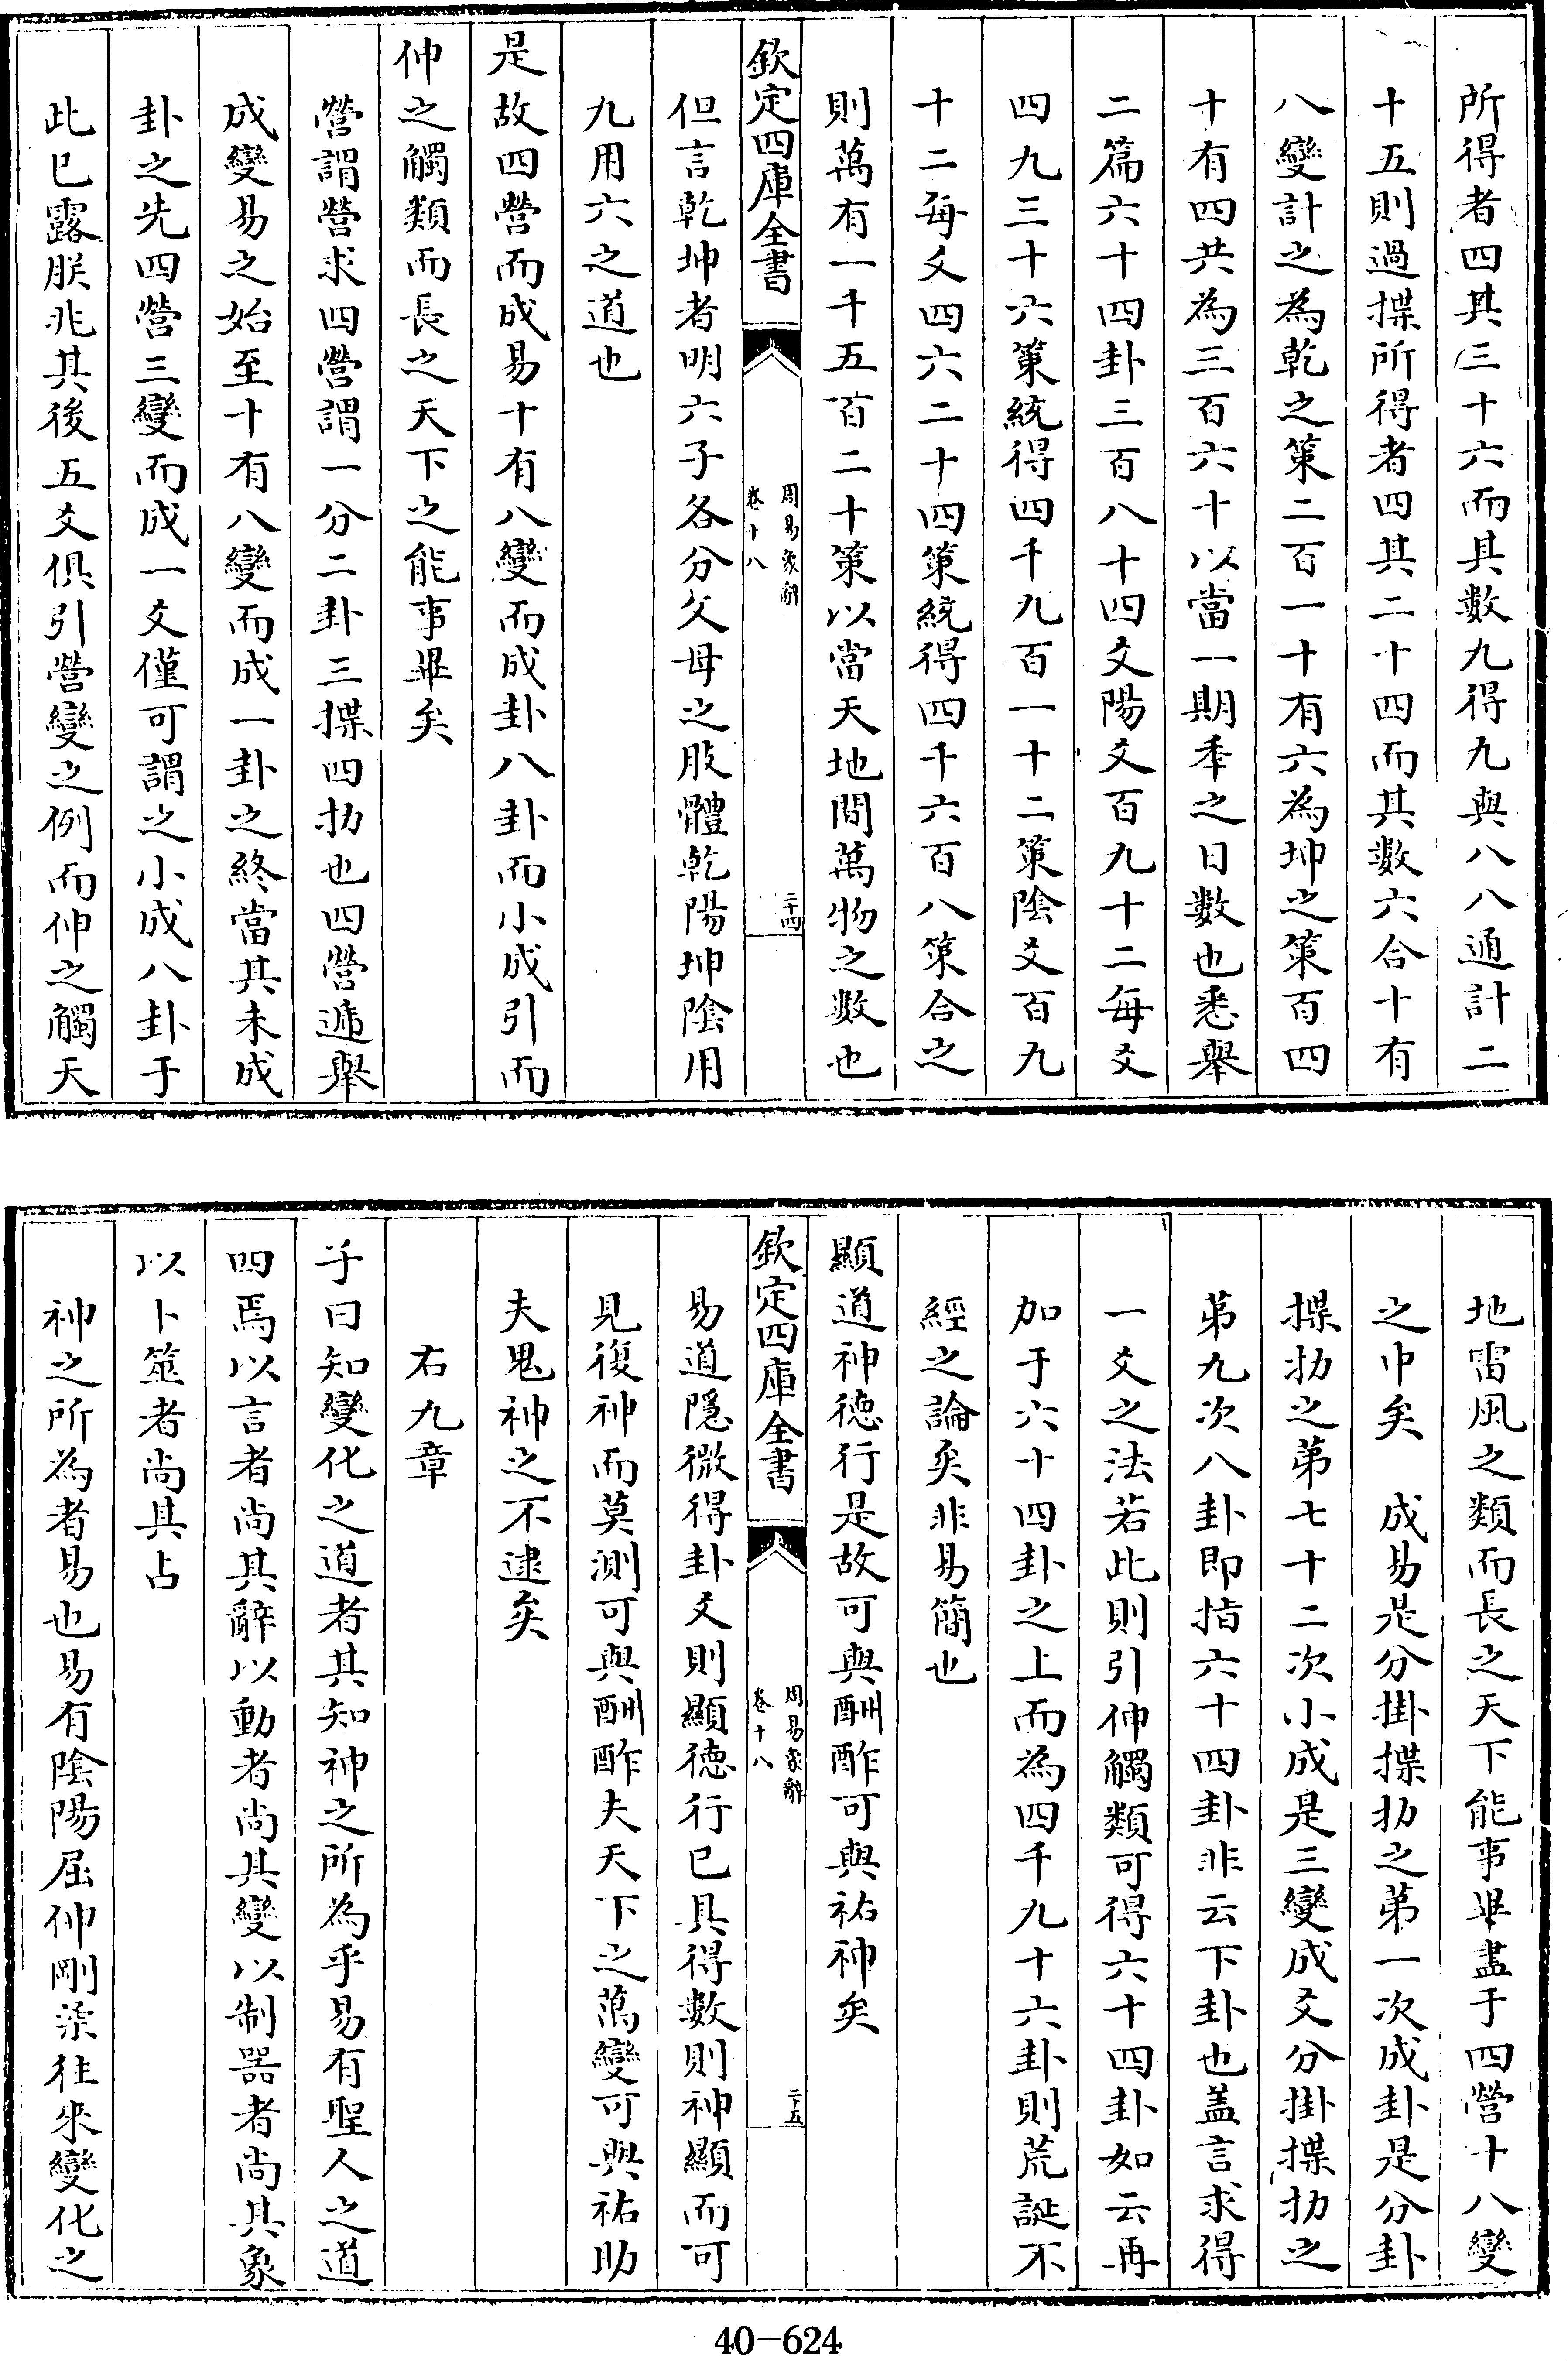 所得者四其三十六而其數九得九與八八通計二
十五則過揲所得者四其二十四而其數六合十有
八變計之為乾之策二百一十有六為坤之策百四
十有四共為三百六十以當一期年之日數也悉舉
二篇六十四卦三百八十四爻陽爻百九十二每爻
四九三十六策統得四千九百一十二策陰爻百九
十二每爻四六二十四策統得四千六百八策合之
則萬有一千五百二十策以當天地間萬物之數也
欽定四庫全書
周易象辭
卷十八
二十四
但言乾坤者明六子各分父母之肢體乾陽坤陰用
九用六之道也
是故四營而成易十有八變而成卦八卦而小成引而
伸之觸類而長之天下之能事畢矣
營謂營求四營謂一分二卦三揲四扐也四營遞舉
成變易之始至十有八變而成一卦之終當其未成
卦之先四營三變而成一爻僅可謂之小成八卦于
此已露朕兆其後五爻俱引營變之例而伸之觸天
地雷風之類而長之天下能事畢盡于四營十八變
之中矣 成易是分掛揲扐之第一次成卦是分卦
揲扐之第七十二次小成是三變成爻分掛揲扐之
第九次八卦即指六十四卦非云下卦也盖言求得
一爻之法若此則引伸觸類可得六十四卦如云再
加于六十四卦之上而為四千九十六卦則荒誕不
經之論矣非易簡也
顯道神德行是故可與酬酢可與祐神矣
欽定四庫全書
周易象辭
卷十八
二十五
易道隱微得卦爻則顯德行已具得數則神顯而可
見復神而莫測可與酬酢夫天下之萬變可與祐助
夫鬼神之不逮矣
右九章
子曰知變化之道者其知神之所為乎易有聖人之道
四焉以言者尚其辭以動者尚其變以制器者尚其象
以卜筮者尚其占
神之所為者易也易有陰陽屈伸剛柔往來變化之
40-624